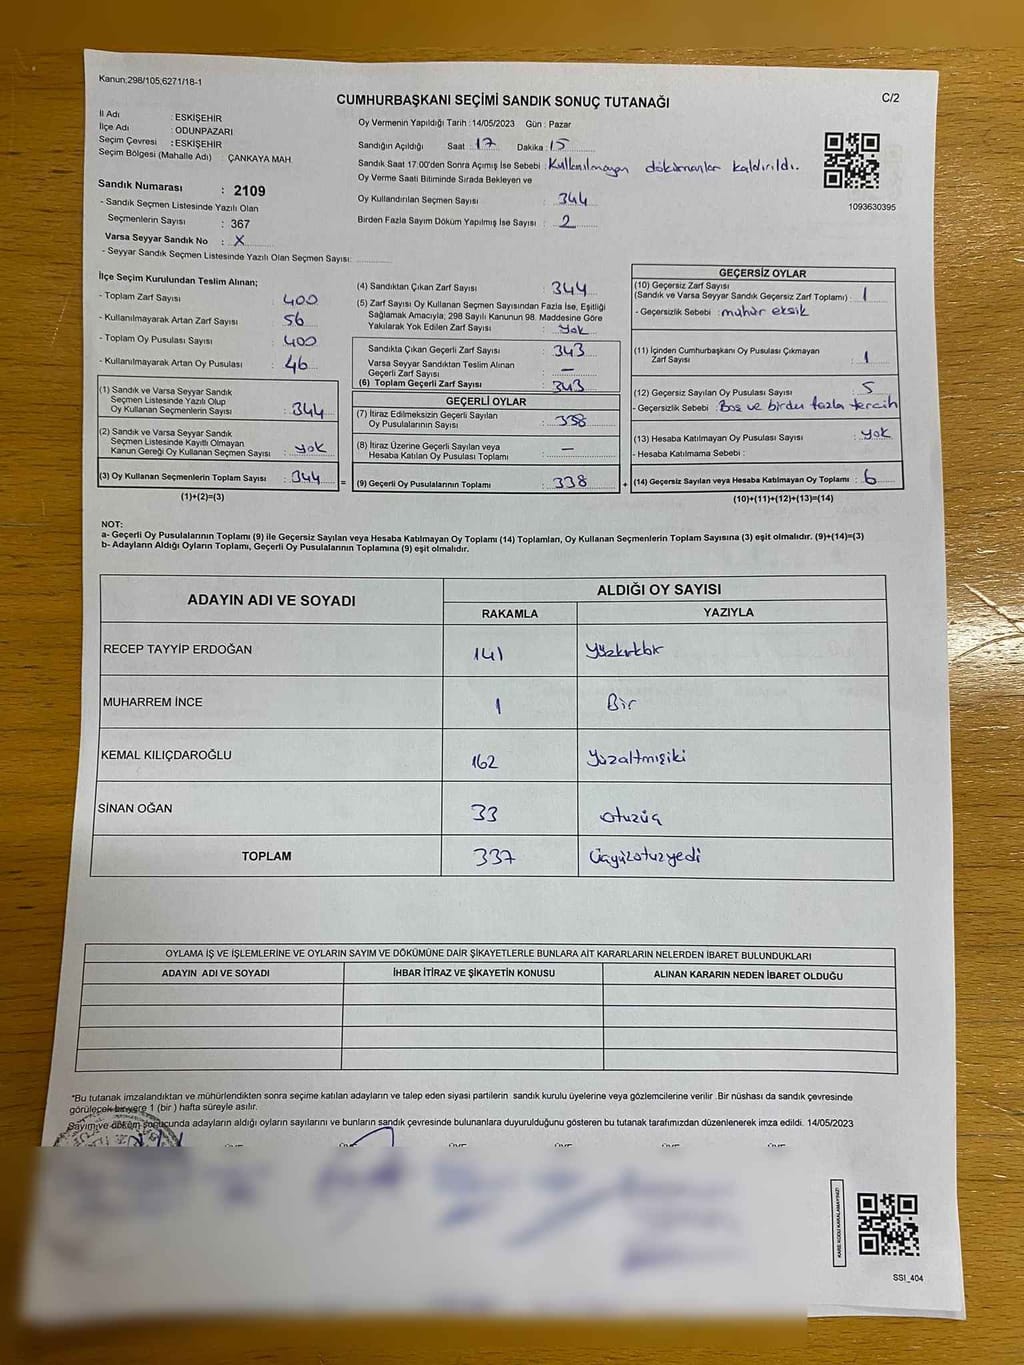 Kanun:298/105;6271/18-1
CUMHURBAŞKANI SEÇİMİ SANDIK SONUÇ TUTANAĞI
C/2
İl Adı : ESKİŞEHİR
İlçe Adı : ODUNPAZARI
Seçim Çevresi : ESKİŞEHİR
Seçim Bölgesi (Mahalle Adı) ÇANKAYA MAH.
Sandık Numarası : 2109
- Sandık Seçmen Listesinde Yazılı Olan
Seçmenlerin Sayısı : 367
Varsa Seyyar Sandık No : X
- Seyyar Sandık Seçmen Listesinde Yazılı Olan Seçmen Sayısı:
Oy Vermenin Yapıldığı Tarih : 14/05/2023 Gün : Pazar
Sandığın Açıldığı Saat 17 Dakika 15
Sandık Saat 17:00'den Sonra Açımış İse Sebebi : Kullanılmayan dökümanlar kaldırıldı.
Oy Verme Saati Bitiminde Sırada Bekleyen ve
Oy Kullandırılan Seçmen Sayısı : 344
Birden Fazla Sayım Döküm Yapılmış İse Sayısı : 2
1093630395
İlçe Seçim Kurulundan Teslim Alınan;
- Toplam Zarf Sayısı : 400
- Kullanılmayarak Artan Zarf Sayısı : 56
- Toplam Oy Pusulası Sayısı : 400
- Kullanılmayarak Artan Oy Pusulası : 46
(1) Sandık ve Varsa Seyyar Sandık
Seçmen Listesinde Yazılı Olup
Oy Kullanan Seçmenlerin Sayısı : 344
(2) Sandık ve Varsa Seyyar Sandık
Seçmen Listesinde Kayıtlı Olmayan
Kanun Gereği Oy Kullanan Seçmen Sayısı : yok
(3) Oy Kullanan Seçmenlerin Toplam Sayısı : 344 =
(1)+(2)=(3)
(4) Sandıktan Çıkan Zarf Sayısı : 344
(5) Zarf Sayısı Oy Kullanan Seçmen Sayısından Fazla İse, Eşitliği
Sağlamak Amacıyla; 298 Sayılı Kanunun 98. Maddesine Göre
Yakılarak Yok Edilen Zarf Sayısı : yok
Sandıkta Çıkan Geçerli Zarf Sayısı : 343
Varsa Seyyar Sandıktan Teslim Alınan
Geçerli Zarf Sayısı : —
(6) Toplam Geçerli Zarf Sayısı : 343
GEÇERLİ OYLAR
(7) İtiraz Edilmeksizin Geçerli Sayılan
Oy Pusulalarının Sayısı : 338
(8) İtiraz Üzerine Geçerli Sayılan veya
Hesaba Katılan Oy Pusulası Toplamı : —
(9) Geçerli Oy Pusulalarının Toplamı : 338 +
GEÇERSİZ OYLAR
(10) Geçersiz Zarf Sayısı
(Sandık ve Varsa Seyyar Sandık Geçersiz Zarf Toplamı) : 1
- Geçersizlik Sebebi : mühür eksik
(11) İçinden Cumhurbaşkanı Oy Pusulası Çıkmayan
Zarf Sayısı : 1
(12) Geçersiz Sayılan Oy Pusulası Sayısı : 5
- Geçersizlik Sebebi : Boş ve birden fazla tercih
(13) Hesaba Katılmayan Oy Pusulası Sayısı : yok
- Hesaba Katılmama Sebebi :
(14) Geçersiz Sayılan veya Hesaba Katılmayan Oy Toplamı : 6
(10)+(11)+(12)+(13)=(14)
NOT:
a- Geçerli Oy Pusulalarının Toplamı (9) ile Geçersiz Sayılan veya Hesaba Katılmayan Oy Toplamı (14) Toplamları, Oy Kullanan Seçmenlerin Toplam Sayısına (3) eşit olmalıdır. (9)+(14)=(3)
b- Adayların Aldığı Oyların Toplamı, Geçerli Oy Pusulalarının Toplamına (9) eşit olmalıdır.
ADAYIN ADI VE SOYADI
ALDIĞI OY SAYISI
RAKAMLA YAZIYLA
RECEP TAYYİP ERDOĞAN 141 Yüzkırkbir
MUHARREM İNCE 1 Bir
KEMAL KILIÇDAROĞLU 162 Yüzaltmışiki
SİNAN OĞAN 33 otuzüç
TOPLAM 337 üçyüzotuzyedi
OYLAMA İŞ VE İŞLEMLERİNE VE OYLARIN SAYIM VE DÖKÜMÜNE DAİR ŞİKAYETLERLE BUNLARA AİT KARARLARIN NELERDEN İBARET BULUNDUKLARI
ADAYIN ADI VE SOYADI İHBAR İTİRAZ VE ŞİKAYETİN KONUSU ALINAN KARARIN NEDEN İBARET OLDUĞU
"Bu tutanak imzalandıktan ve mühürlendikten sonra seçime katılan adayların ve talep eden siyasi partilerin sandık kurulu üyelerine veya gözlemcilerine verilir .Bir nüshası da sandık çevresinde
görülecek bir yere 1 (bir ) hafta süreyle asılır.
Sayım ve döküm sonucunda adayların aldığı oyların sayılarını ve bunların sandık çevresinde bulunanlara duyurulduğunu gösteren bu tutanak tarafımızdan düzenlenerek imza edildi. 14/05/2023
KARE KODU KARALAMAYINIZ!
SSI_404